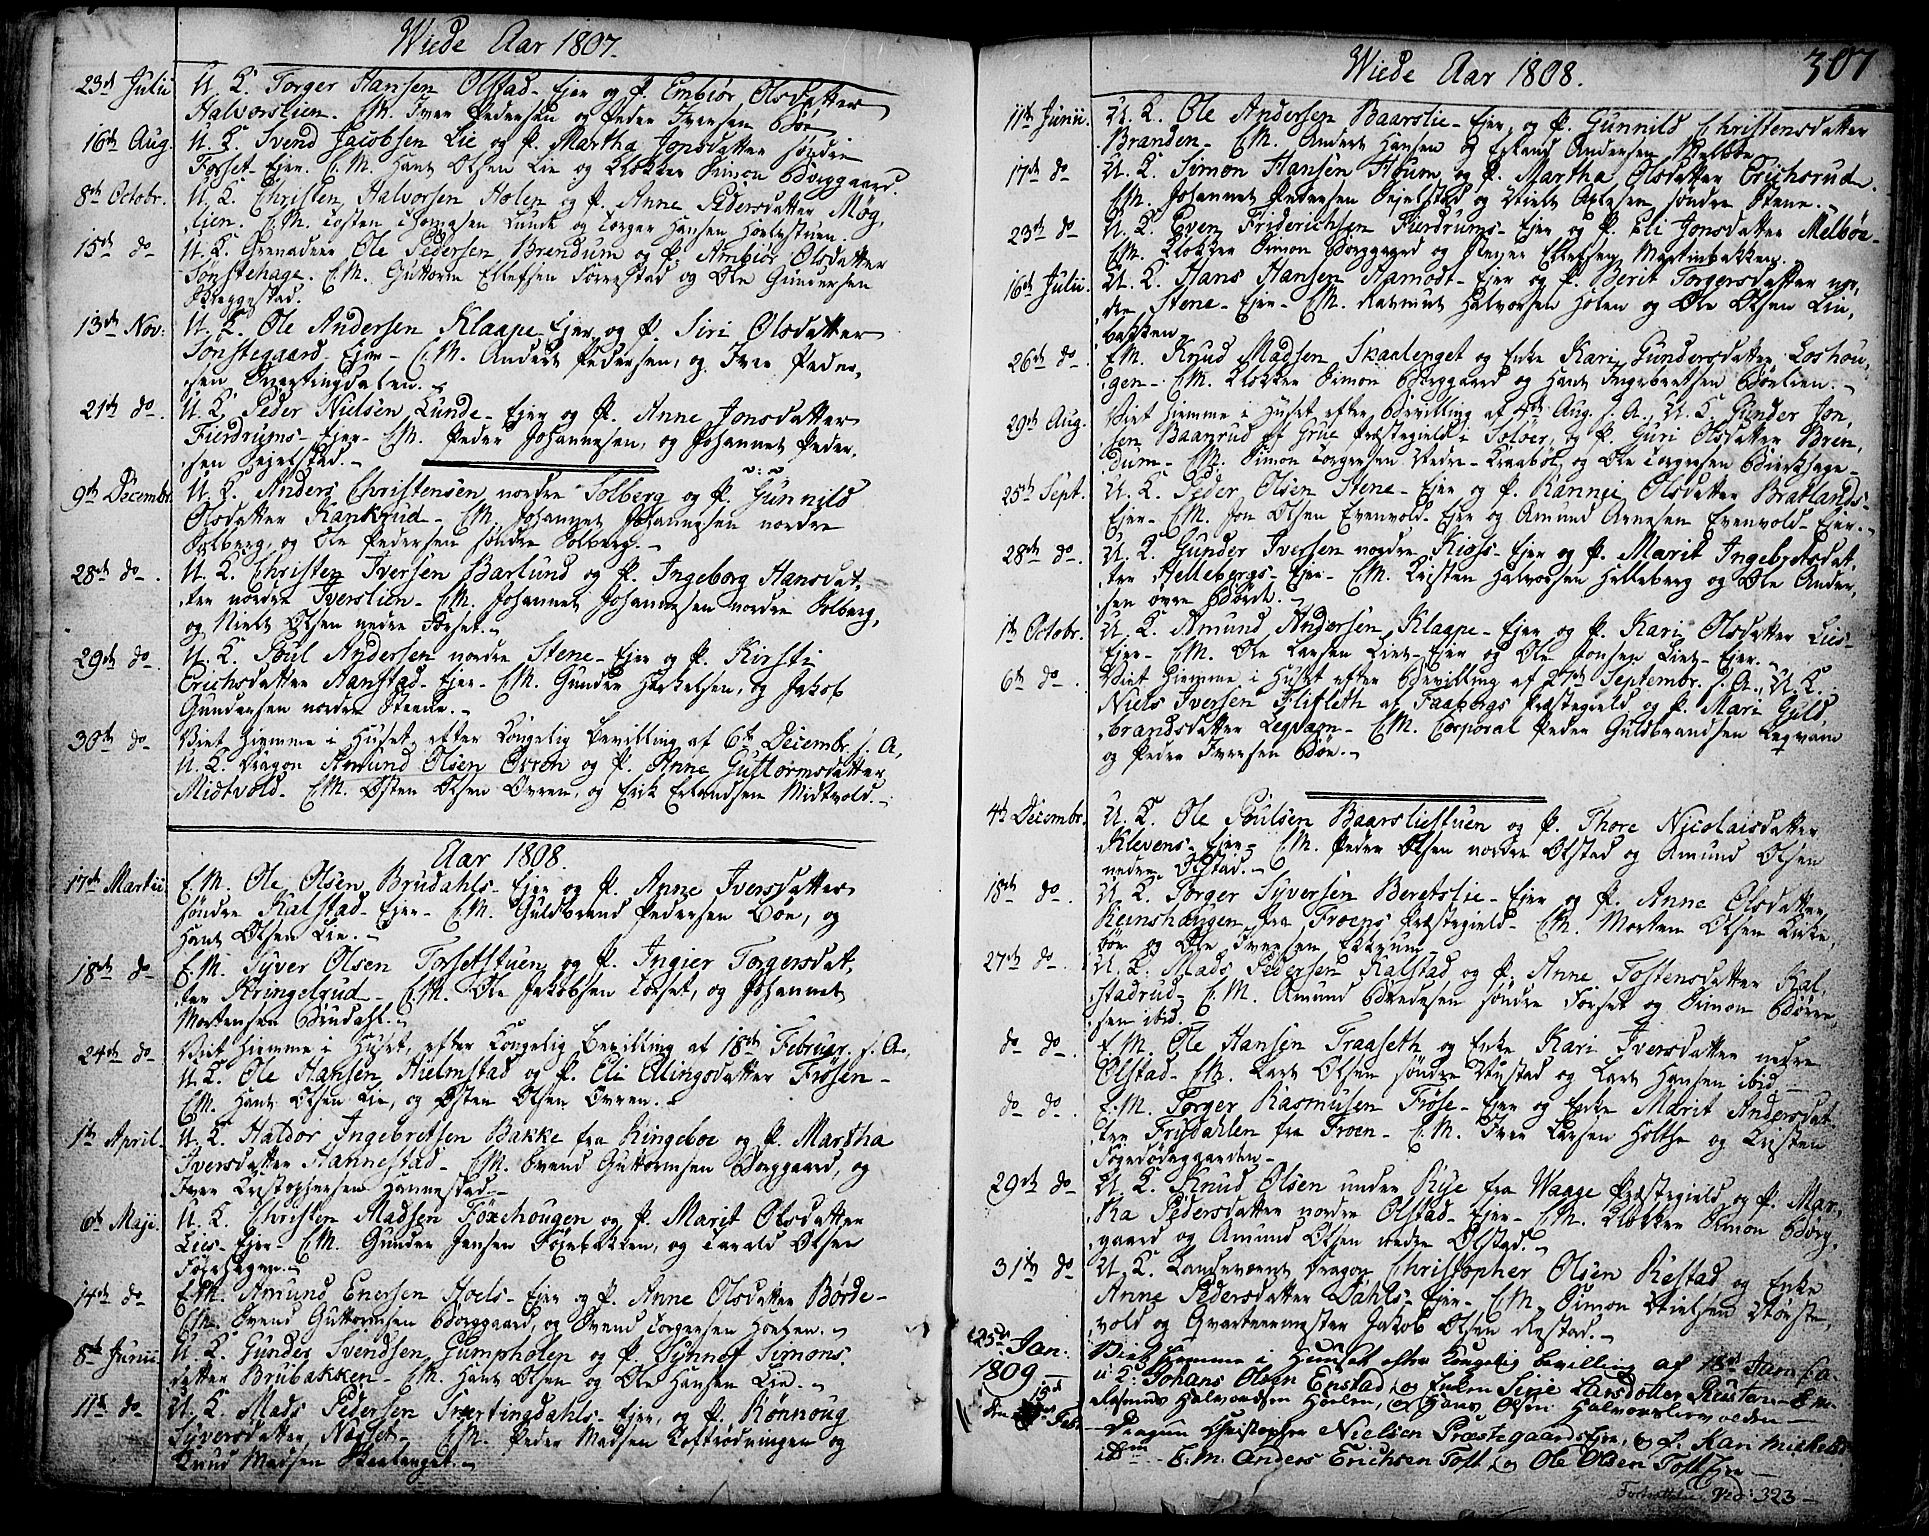 Wiede Aar 1807.
23de Julii U. K. Torger Hansen Olstad-Ejer og P. Embiør Olsdatter
Halvorslien. C.M. Iver Pedersen og Peder Iversen Bøe
16de Aug. U. K. Svend Jacobsen Lie og P. Martha Jonsdatter søndre
Forset-Ejer. C.M. Hans Olsen Lie og Klokker Simon Borggaard.
8de Octobr. U. K. Christen Halvorsen Holen og P. Anne Pedersdatter Møg,
lien. C.M. Tosten Thomasen Lunde og Torger Hansen
15de do U. K. Grenadeer Ole Pedersen Brendum og P. Ambiør Olsdatter
Sønstehage. C.M. Guttorm Ellefsen og Ole Gundersen
Skeggestad.
13de Nov: U. K. Ole Andersen Klaape-Ejer og P. Siri Olsdatter
Sønstegaard-Ejer- C.M. Anders Pedersen, og Iver Peder,
sen Svertingdalen.
21de do. U. K. Peder Nielsen Lunde-Ejer og P. Anne Jonsdatter
Fierdrums-Ejer- C.M. Peder Johannesen, og Johannes Peder,
sen Sejelstad.
9de Decembr. U. K. Anders Christensen nordre Solberg og P. Gunnild
Olsdatter Kankrud- C.M. Johannes Johannesen nordre
Solberg, og Ole Pedersen søndre Solberg.
28de do. U. K. Christen Iversen Barlund og P. Ingeborg Hansdat,
ter nordre Iverslien- C.M. Johannes Johannesen nordre Solberg,
og Niels Olsen nedre Forset.
29de do. U. K. Poul Andersen nordre Stene-Ejer og P. Kirsti
Erichsdatter Aanstad-Ejer- C.M. Gunder og Jakob
Gundersen nordre Steene.
30de do Viet hiemme i Huset efter Kongelig Bevilling af 6te Decembr. s. A,
U. K. Dragon Amund Olsen Øvren og P. Anne Guttormsdatter
Midtvold- C.M. Østen Olsen Øvren, og Erik Erlandsen Midtvold.
Aar 1808.
17de Martii E.M. Ole Olsen Brudahls-Ejer og P. Anne Iversdatter
søndre Kalstad-Ejer- C.M. Guldbrand Pedersen Bøe, og
Hans Olsen Lie.
18de do E.M. Syver Olsen Forsetstuen og P. Ingier Torgersdat,
ter Kringelrud- C.M. Ole Jakobsen Forset, og Johannes
Mortensen Brudahl.
24de do Viet hiemme i Huset, efter Kongelig Bevilling af 18de Februar. s. A.,
U. K. Ole Hansen Hielmstad og P. Eli Ellingsdatter Frosen-
C.M. Hans Olsen Lie, og Østen Olsen Øvren.
1te April- U. K. Haldor Ingebretsen Bakke fra Ringeboe og P. Martha
Iversdatter Hannestad- C.M. Svend Guttormsen Borggaard, og
Iver Christophersen Hannestad.
6te Maji. U. K. Christen Madsen Foxehougen og P. Marit Olsdatter
Lies-Ejer- C.M. Gunder Jensen og Olsen

14de do E.M. Amund Enersen Hoels-Ejer og P. Anne Olsdatter Børde-
C.M. Svend Guttormsen Borggaard, og Svend Torgersen
8de Junii U. K. Gunder Svendsen Gumpholen og P. Synnef Simons,
datter Brubakken- C.M. Hans Olsen og Ole Hansen Lie.
11te do U. K. Mads Pedersen Svertingdahls-Ejer, og P. Rønnoug
Syversdatter C.M. Peder Madsen og
Knud Madsen Skaalenget.
Wiede Aar 1808. 307
11te Junii. U. K. Ole Andersen Baarslie-Ejer, og P. Gunnild Christensdatter
Branden- C.M. Anders Hansen og Erland Andersen Melbøe
17de do U. K. Simon Hansen Houm og P. Martha Olsdatter Erichsrud.
C.M. Johannes Pedersen Sejelstad og Niels søndre Steene.
23de do U. K. Even Friderichsen Fierdrums-Ejer og P. Eli Jonsdatter Melbøe-
C.M. Klokker Simon Borggaard og Ellefsen Martinbakken.
16de Julii. U. K. Hans Hansen Hamodt-Ejer og P. Berit Torgersdatter nor,
dre Stene-Ejer- C.M. Rasmus Halvorsen Holen og Ole Olsen Lie,
bakken
26de do. E.M. Knud Madsen Skaalenget og Enke Kari Gundersdatter Loshou,
gen- C.M. Klokker Simon Borggaard og Hans Ingebretsen Bøelien.
29de Aug. Viet hiemme i Huset efter Bevilling af 4de Aug. s. A., U. K. Gunder Jon,
sen Baanrud af Grue Præstegield i Soløer, og P. Guri Olsdatter Bren,
dum- C.M. Simon Torgersen Nedre-Kraabøl og Ole Torgersen Bierkhage-
25de Sept. U. K. Peder Olsen Stene-Ejer og P. Rannei Olsdatter Bratlands-
Ejer- C.M. Jon Olsen Evenvold-Ejer og Amund Arnesen Evenvold-Ejer.
28de do. U. K. Gunder Iversen nordre Kioss-Ejer og P. Marit Ingebretsdat,
ter Hellebergs-Ejer- C.M. Kristen Halvorsen Helleberg og Ole Ander,
sen øvre Børde.
1te Octobr. U. K. Amund Andersen Klaape-Ejer og P. Kari Olsdatter Lies-
Ejer- C.M. Ole Larsen Lies-Ejer og Ole Jonsen Lies-Ejer.
6te do. Viet hiemme i Huset efter Bevilling af 27de Septembr. s. A., U. K.
Niels Iversen Flifleth af Faabergs Præstegield og P. Mari Guld,
brandsdatter Leqvam- C.M. Corporal Peder Guldbrandsen Leqvam
og Peder Iversen Bøe.
4de Decembr. U. K. Ole Poulsen Baarsliestuen og P. Thore Nicolaisdatter
Klevens-Ejer- C.M. Peder Olsen nordre Olstad og Amund Olsen
nedre Olstad.
18de do. U. K. Torger Syversen Beretslie-Ejer og P. Anne Olsdatter
Reinshougen fra Froens Præstegield- C.M. Morten Olsen Kirke,
bøe og Ole Iversen
27de do. U. K. Mads Pedersen Kalstad og P. Anne Tostensdatter Kal,
stadrud- C.M. Amund søndre Forset og Simon
sen ibid.
do do. E.M. Ole Hansen Traaseth og Enke Kari Iversdatter nedre
Olstad- C.M. Lars Olsen søndre og Lars Hansen ibid.
do do. E.M. Torger Rasmusen Frose-Ejer og Enke Marit Andersdat,
ter Frydahlen fra Froen- C.M. Iver Larsen Holthe og Kristen

29de do U. K. Knud Olsen under Rije fra Waage Præstegield og P. Mar,
tha Pedersdatter nordre Olstad-Ejer- C.M. Klokker Simon Borg,
gaard og Amund Olsen nedre Olstad.
31te do U. K. Landeværns Dragon Christopher Olsen Restad og Enke
Anne Pedersdatter Dahls-Ejer- C.M. Simon Nielsen
vold og Qvarteermester Jakob Olsen Restad.
25de Jan: Viet hjemme i Huuset efter Kongelig bevilling af 13de Jan. s. A.
1809 U. K. Johans Olsen Enstad, og Enken Sirje Larsdatter
Rasmus Halvorsen Hoelen, og Hans Olsen
den Febr. Dragun Christopher Nielsen Præstegaards Ejer, og P. Kari
ibm E. M. Anders Erichsen Toft og Ole Olsen Toft Ejer
Fortsættelse Ved: 323